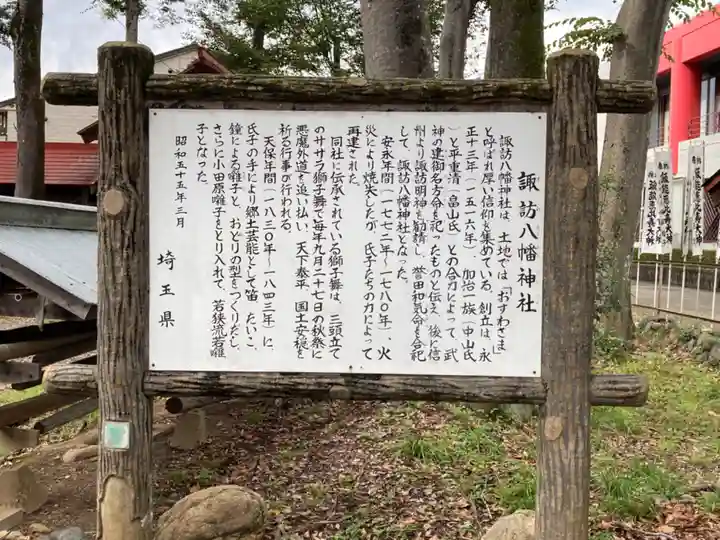 諏訪八幡神社
諏訪八幡神社は、土地では「おすわさま」
と呼ばれ厚い信仰を集めている。創立は、永
正十三年(一五一六年)、加治一族(中山氏
)と平重清(畠山氏)との合力によって、武
神の建御名方命を祀ったものと伝え、後に信
州より諏訪明神を勧請し、誉田和気命を合祀
して、諏訪八幡神社となった。
安永年間(一七七二年〜一七八〇年)、火
災により焼失したが、氏子たちの力によって
再建された。
同社に伝承されている獅子舞は、三頭立て
のササラ獅子舞で毎年九月二十七日の秋祭に
悪魔外道を追い払い、天下泰平、国土安穏を
祈る行事が行われる。
天保年間(一八三〇年〜一八四三年)に、
氏子の手により郷土芸能として笛、たいこ、
鐘による囃子と、おどりの型をつくりだし、
さらに小田原囃子をとり入れて、若狭流若囃
子となった。
昭和五十五年三月
埼玉県
飯能恵比寿大神